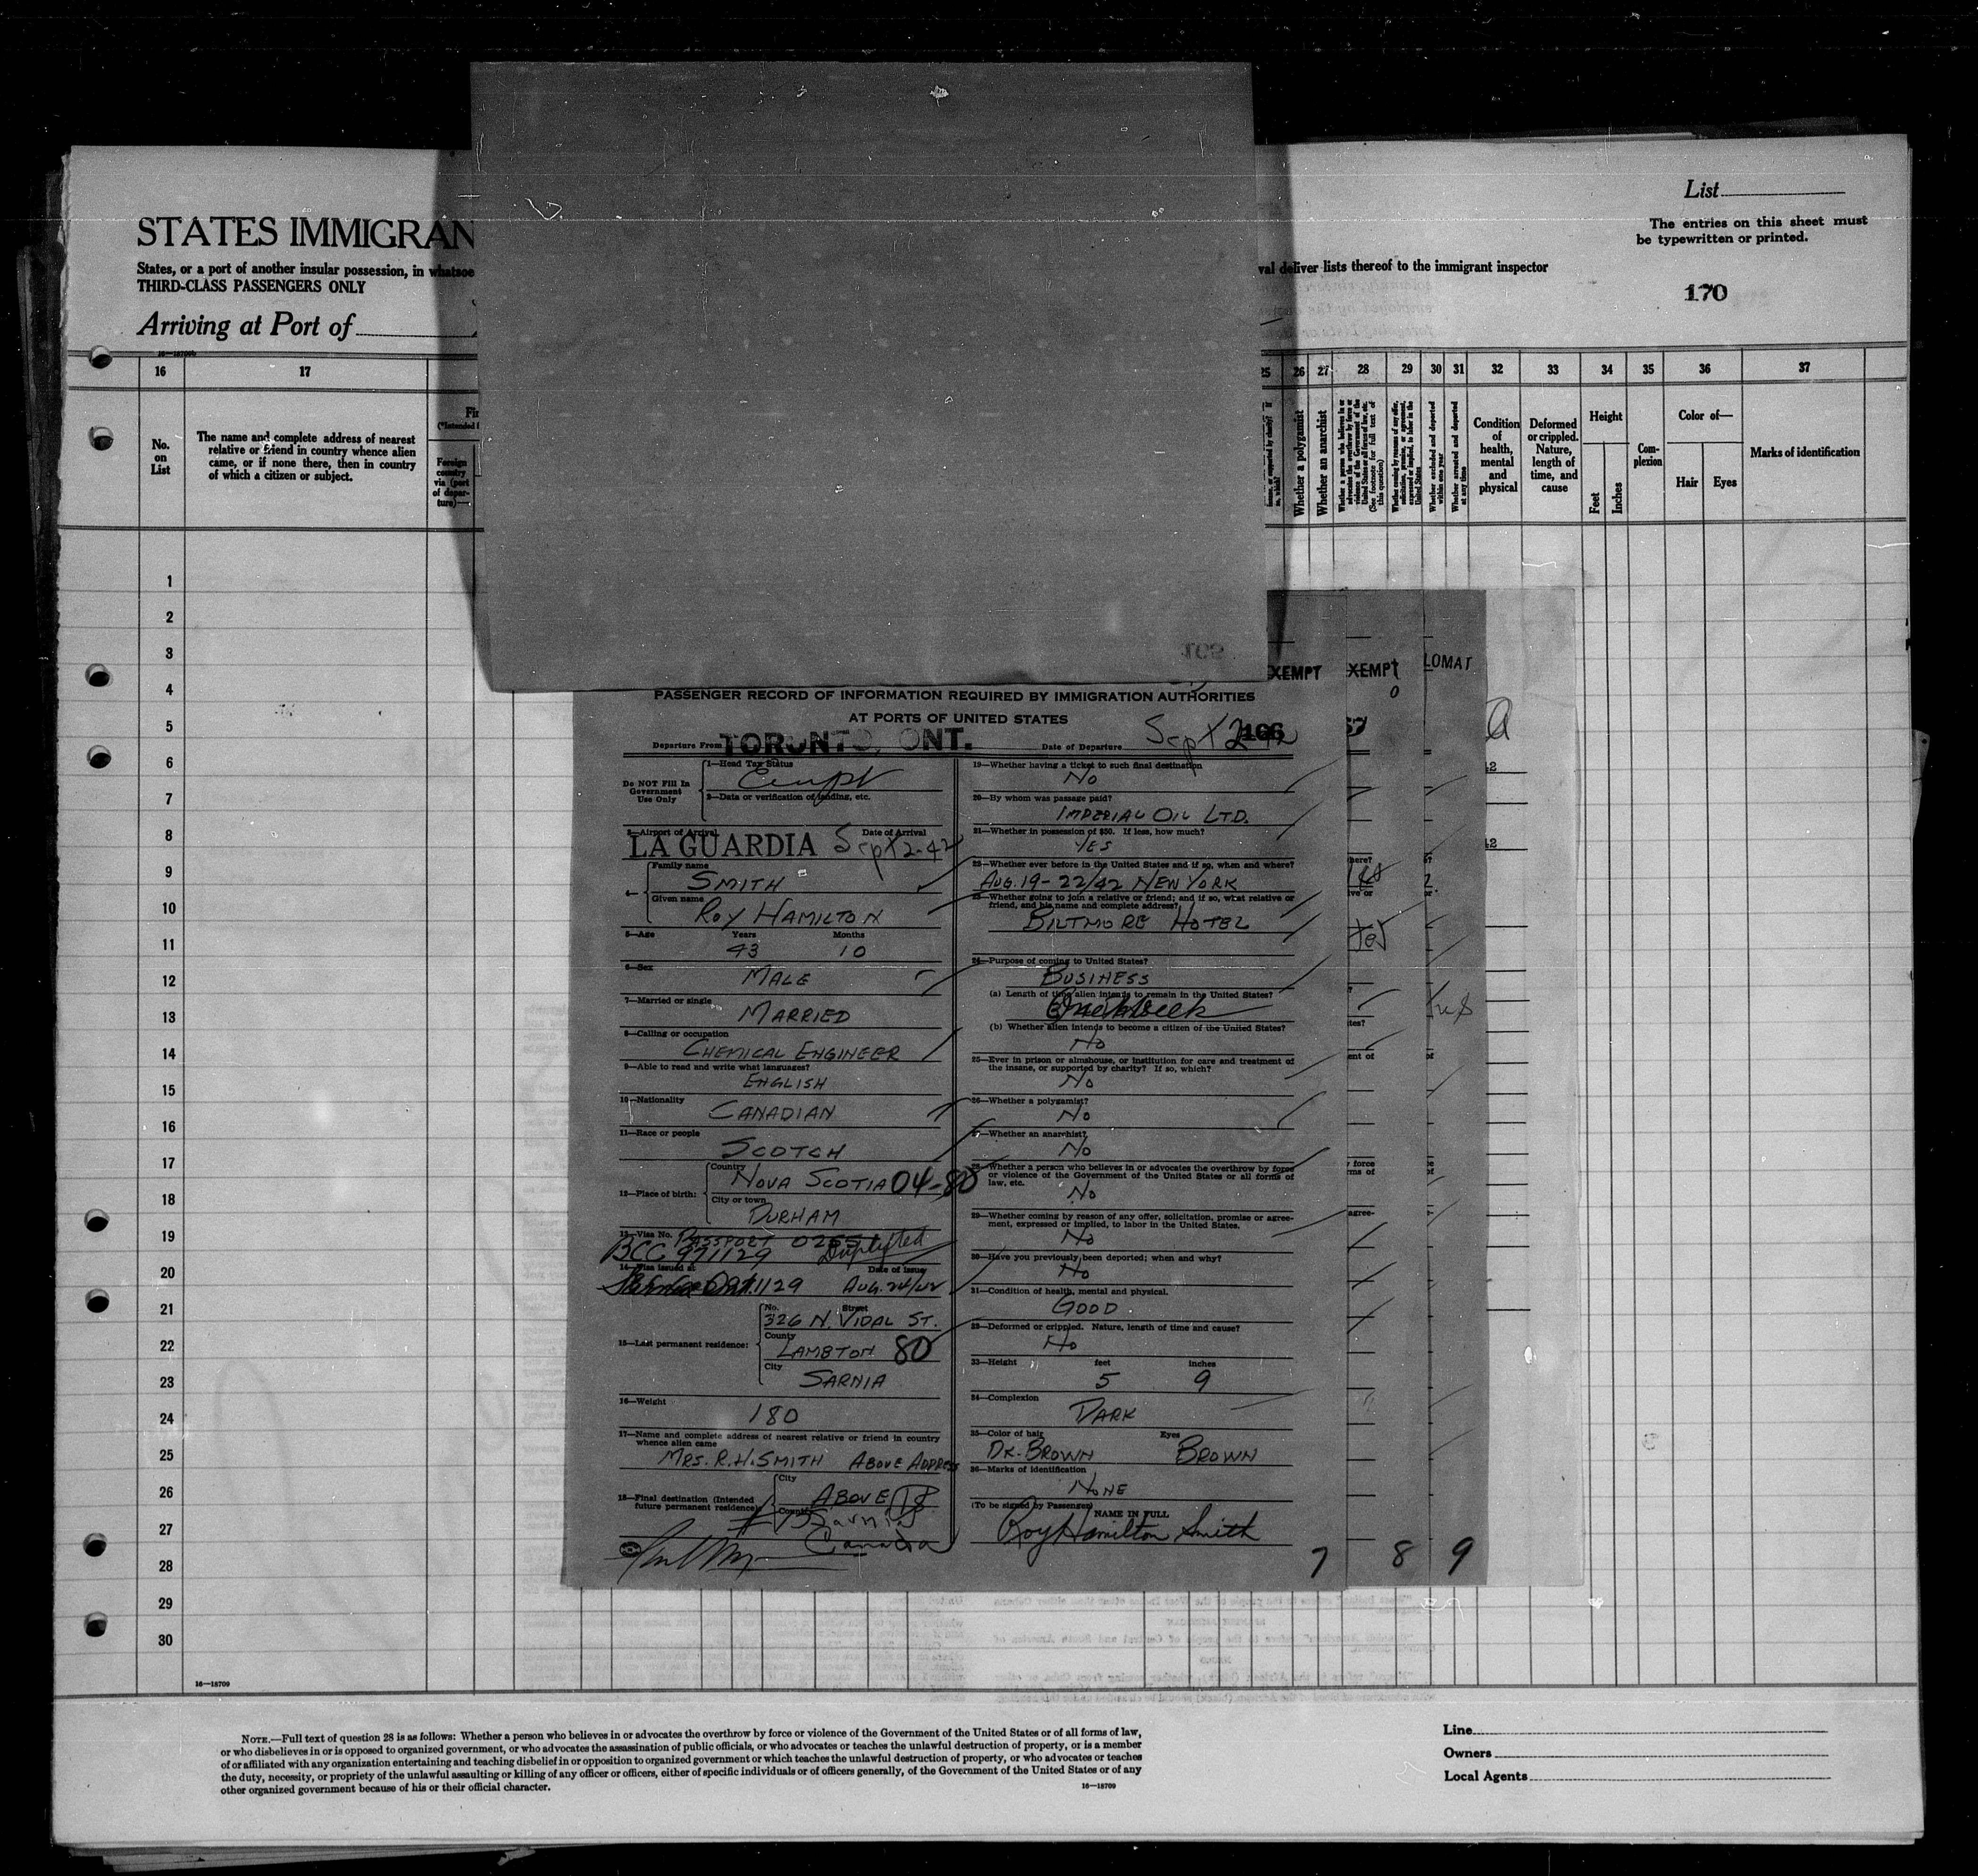 List
STATES IMMIGRAN
The entries on this sheet must
be typewritten or printed.
States, or a port of another insular possession, in whatsoe
val deliver lists thereof to the immigrant inspector
THIRD-CLASS PASSENGERS ONLY
170
Arriving at Port of
16 17 25 26 27 28 29 30 31 32 33 34 35 36 37
No.
on
List
The name and complete address of nearest
relative or friend in country whence alien
came, or if none there, then in country
of which a citizen or subject.
Foreign
country
via (port
of depar-
ture)—
Whether a polygamist
Whether an anarchist
Whether a person who believes in or
advocates the overthrow by force or
violence of the Government of the
United States or all forms of law, etc.
(See footnote for full text of
this question)
Whether coming by reason of any offer,
solicitation, promise, or agreement,
expressed or implied, to labor in the
United States
Whether excluded and deported
within one year
Whether arrested and deported
at any time
Condition
of
health,
mental
and
physical
Deformed
or crippled.
Nature,
length of
time, and
cause
Height
Feet
Inches
Com-
plexion
Color of—
Hair Eyes
Marks of identification
1
2
3
4
5
6
7
8
9
10
11
12
13
14
15
16
17
18
19
20
21
22
23
24
25
26
27
28
29
30
XEMPT XEMPT LOMAT
PASSENGER RECORD OF INFORMATION REQUIRED BY IMMIGRATION AUTHORITIES
AT PORTS OF UNITED STATES
Departure From TORONTO, ONT.
Date of Departure Sept 2 42
166
Do NOT Fill In
Government
Use Only
1—Head Tax Status
2—Data or verification of landing, etc.
3—Airport of Arrival Date of Arrival
LA GUARDIA Sept 2-42
4— Family name
SMITH
Given name
ROY HAMILTON
5—Age Years Months
43 10
6—Sex
MALE
7—Married or single
MARRIED
8—Calling or occupation
CHEMICAL ENGINEER
9—Able to read and write what languages?
ENGLISH
10—Nationality
CANADIAN
11—Race or people
SCOTCH
12—Place of birth:
Country
NOVA SCOTIA 04-80
City or town
DURHAM
13—Visa No. PASSPORT
BCC 971129
14—Visa issued at Date of Issue
AUG. 24/42
15—Last permanent residence:
No. Street
326 N. VIDAL ST.
County
LAMBTON 80
City
SARNIA
16—Weight
180
17—Name and complete address of nearest relative or friend in country
whence alien came
MRS. R.H. SMITH ABOVE ADDRESS
18—Final destination (Intended
future permanent residence)
City
ABOVE
County
Sarnia
Canada
19—Whether having a ticket to such final destination
No
20—By whom was passage paid?
IMPERIAL OIL LTD.
21—Whether in possession of $50. If less, how much?
YES
22—Whether ever before in the United States and if so, when and where?
AUG. 19-22/42 NEW YORK
23—Whether going to join a relative or friend; and if so, what relative or
friend, and his name and complete address?
BILTMORE HOTEL
24—Purpose of coming to United States?
BUSINESS
(a) Length of time alien intends to remain in the United States?
One Week
(b) Whether alien intends to become a citizen of the United States?
No
25—Ever in prison or almshouse, or institution for care and treatment of
the insane, or supported by charity? If so, which?
No
26—Whether a polygamist?
No
27—Whether an anarchist?
No
28—Whether a person who believes in or advocates the overthrow by force
or violence of the Government of the United States or all forms of
law, etc.
No
29—Whether coming by reason of any offer, solicitation, promise or agree-
ment, expressed or implied, to labor in the United States.
No
30—Have you previously been deported; when and why?
No
31—Condition of health, mental and physical.
GOOD
32—Deformed or crippled. Nature, length of time and cause?
No
33—Height feet inches
5 9
34—Complexion
DARK
35—Color of hair Eyes
DK. BROWN BROWN
36—Marks of identification
NONE
(To be signed by Passenger) NAME IN FULL
Roy Hamilton Smith
7 8 9
16—18709
NOTE.—Full text of question 28 is as follows: Whether a person who believes in or advocates the overthrow by force or violence of the Government of the United States or of all forms of law,
or who disbelieves in or is opposed to organized government, or who advocates the assassination of public officials, or who advocates or teaches the unlawful destruction of property, or is a member
of or affiliated with any organization entertaining and teaching disbelief in or opposition to organized government or which teaches the unlawful destruction of property, or who advocates or teaches
the duty, necessity, or propriety of the unlawful assaulting or killing of any officer or officers, either of specific individuals or of officers generally, of the Government of the United States or of any
other organized government because of his or their official character.
16—18709
Line
Owners
Local Agents